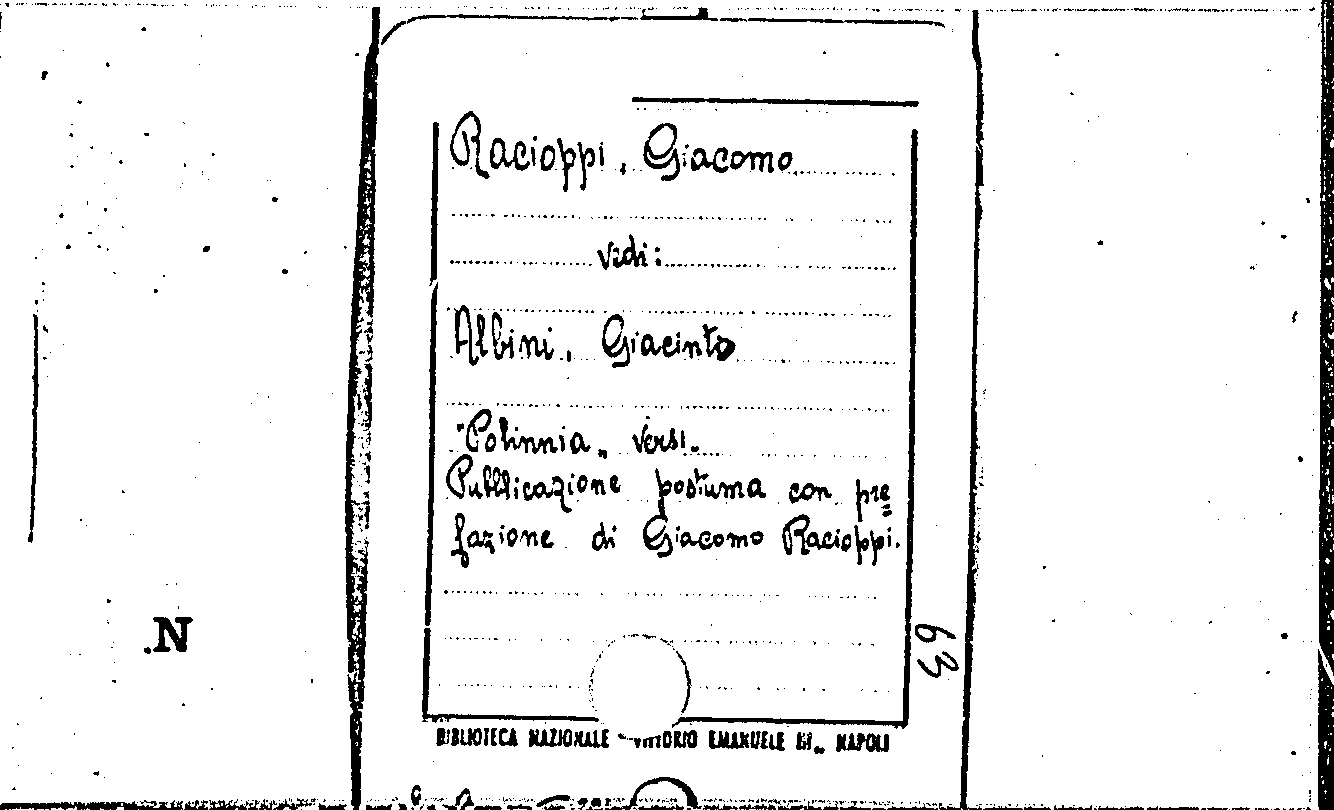 Racioppi, Giacomo
vidi:
Albini, Giacinto
"Polinnia„ versi.
Pubblicazione postuma con pre=
fazione di Giacomo Racioppi.
63
.N
BIBLIOTECA NAZIONALE - VITTORIO EMANUELE III„ NAPOLI